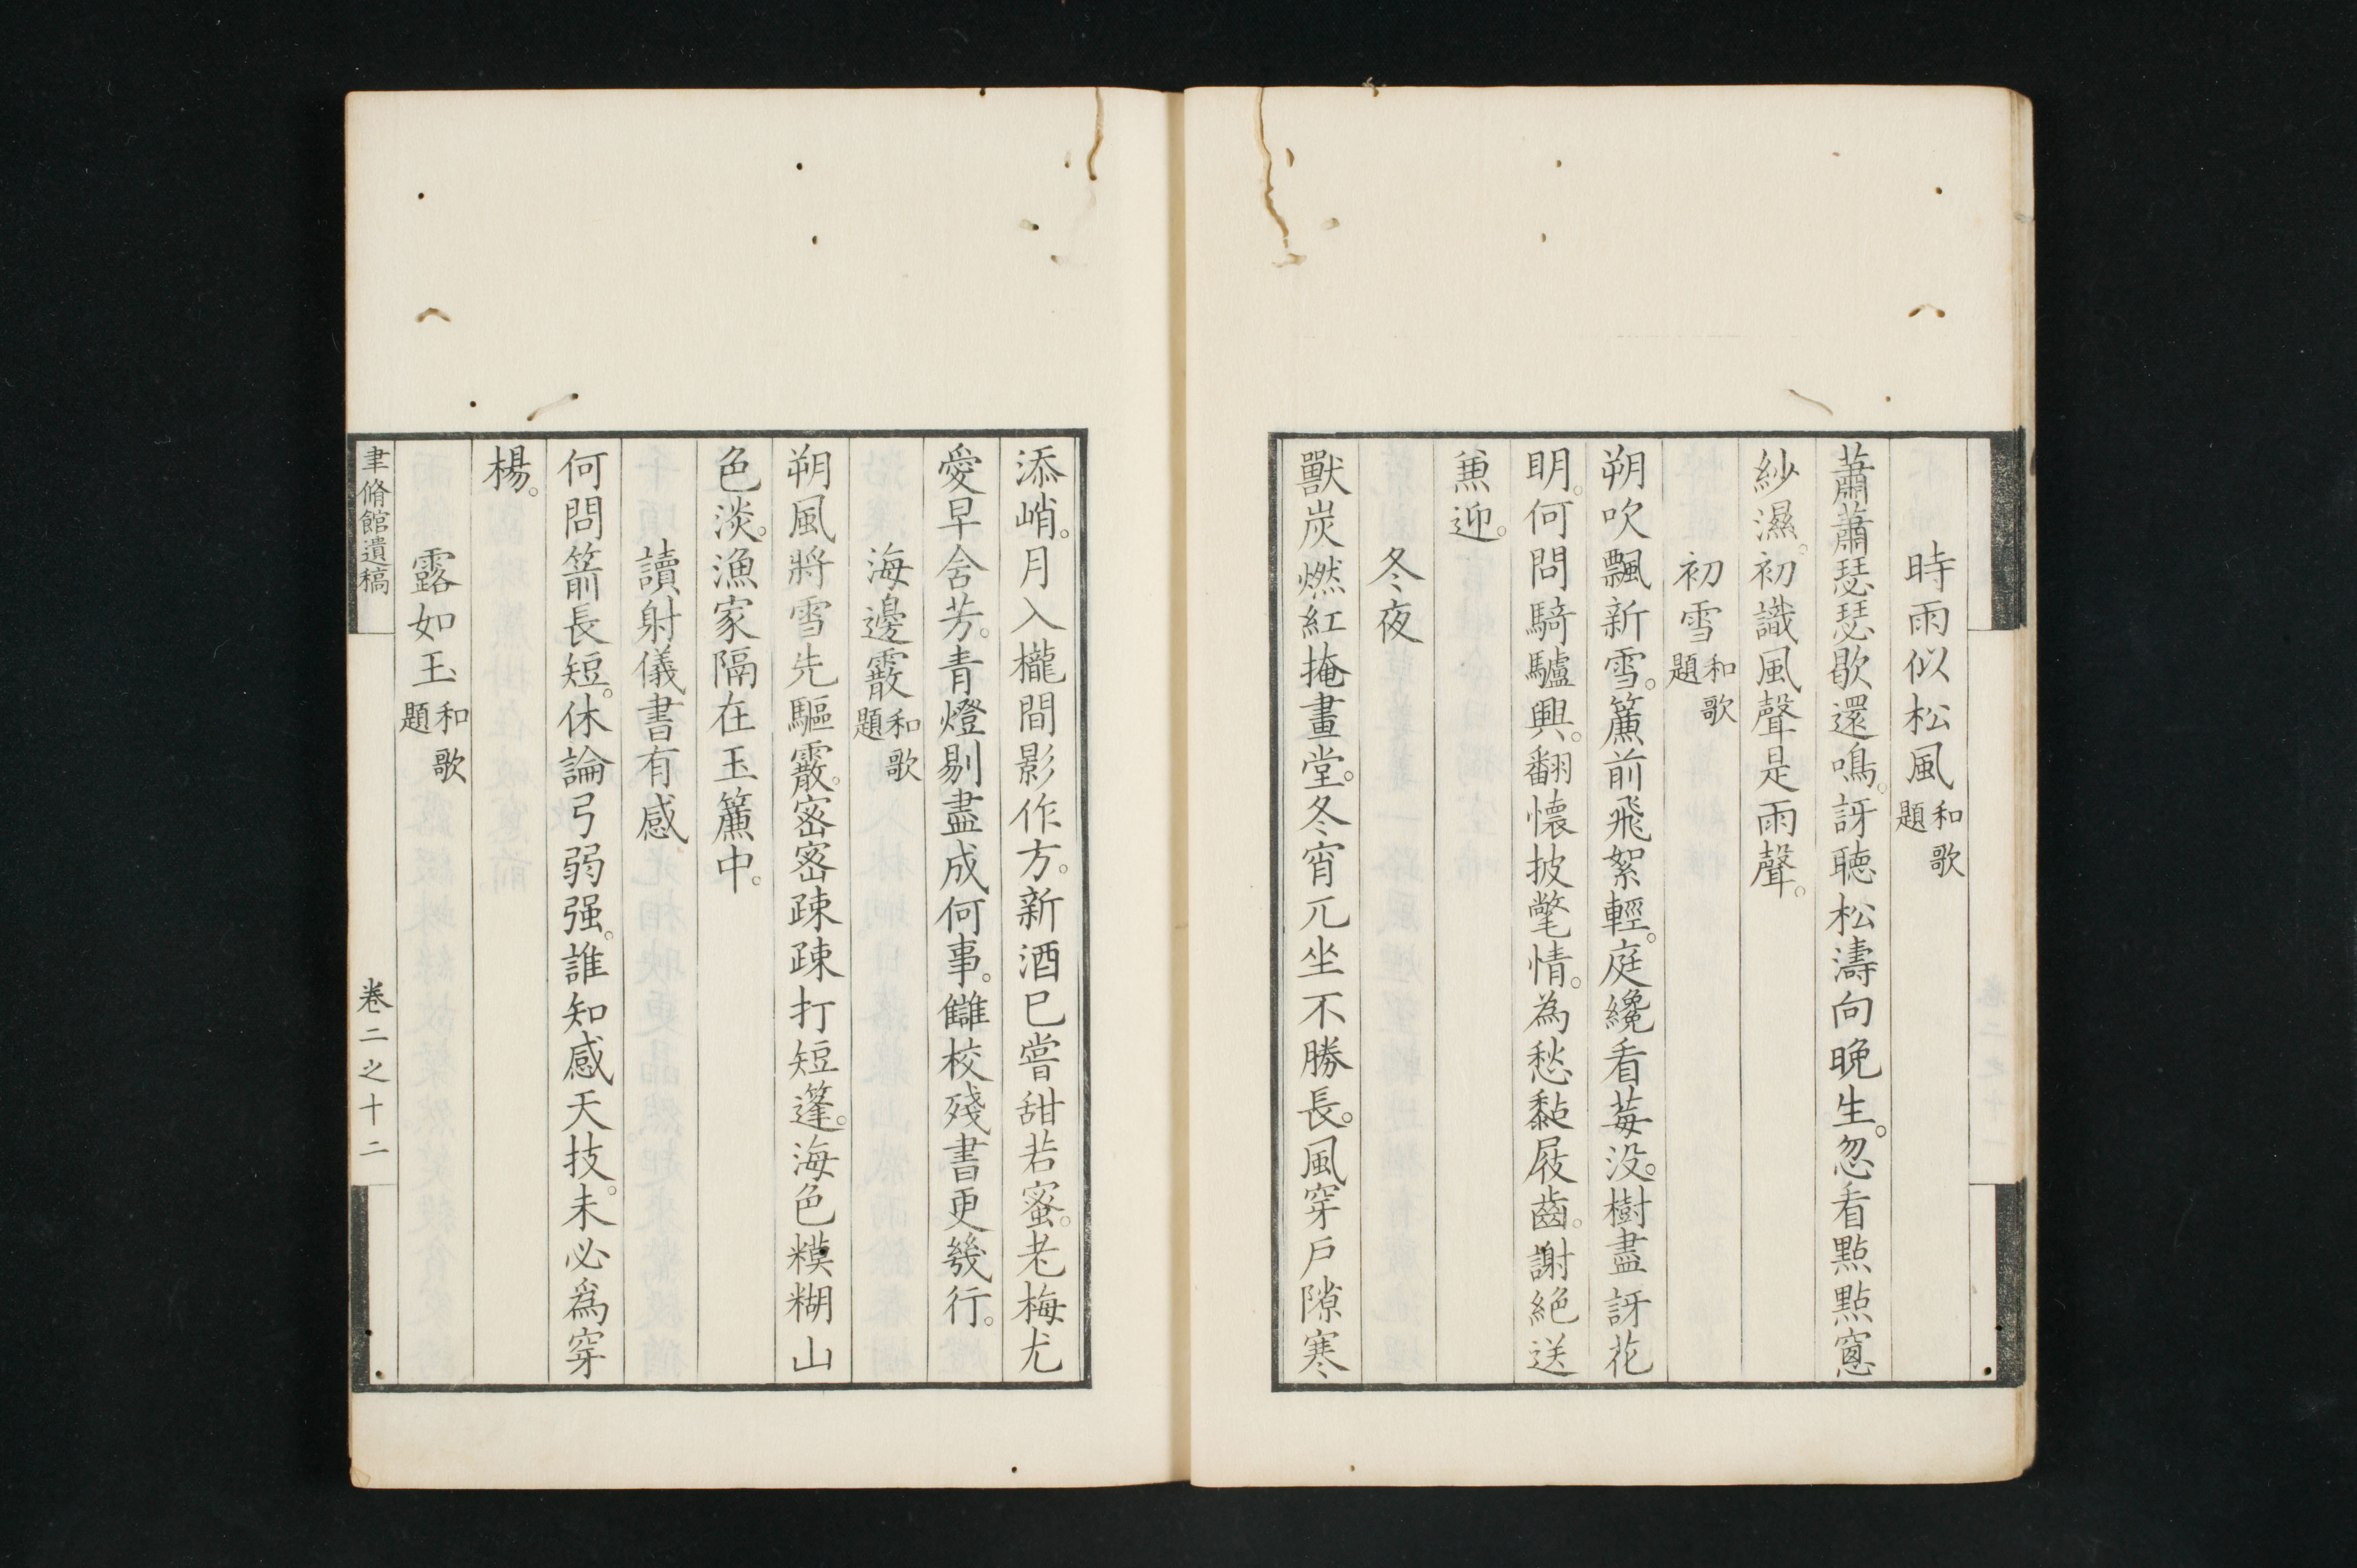 時雨似松風 和歌題
蕭蕭瑟瑟歇還鳴。訝聽松濤向晚生。忽看點點窓
紗濕。初識風聲是雨聲。
初雪 和歌題
朔吹飄新雪。簾前飛絮輕。庭纔看莓没。樹盡訝花
明。何問騎驢興。翻懷披氅情。為愁黏屐齒。謝絕送
兼迎。
冬夜
獸炭燃紅掩畫堂。冬宵兀坐不勝長。風穿戶隙寒
添峭。月入櫳間影作方。新酒已嘗甜若蜜。老梅尤
愛早含芳。青燈剔盡成何事。讎校殘書更幾行。
海邊霰 和歌題
朔風將雪先驅霰。密密疎疎打短篷。海色糢糊山
色淡。漁家隔在玉簾中。
讀射儀書有感
何問箭長短。休論弓弱强。誰知感天技。未必爲穿
楊。
露如玉 和歌題
聿脩館遺稿 卷二之十二